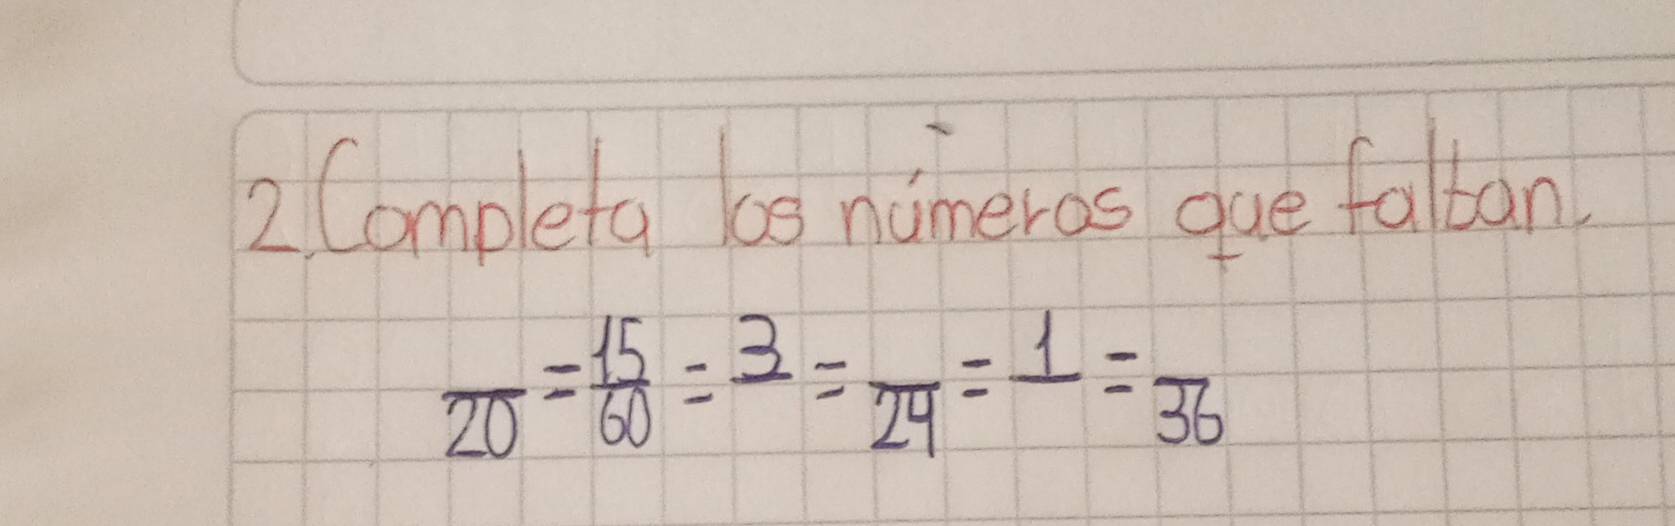 2. Completa los números que faltan.
/20 = 15/60 = 3/ = /24 = 1/ = /36